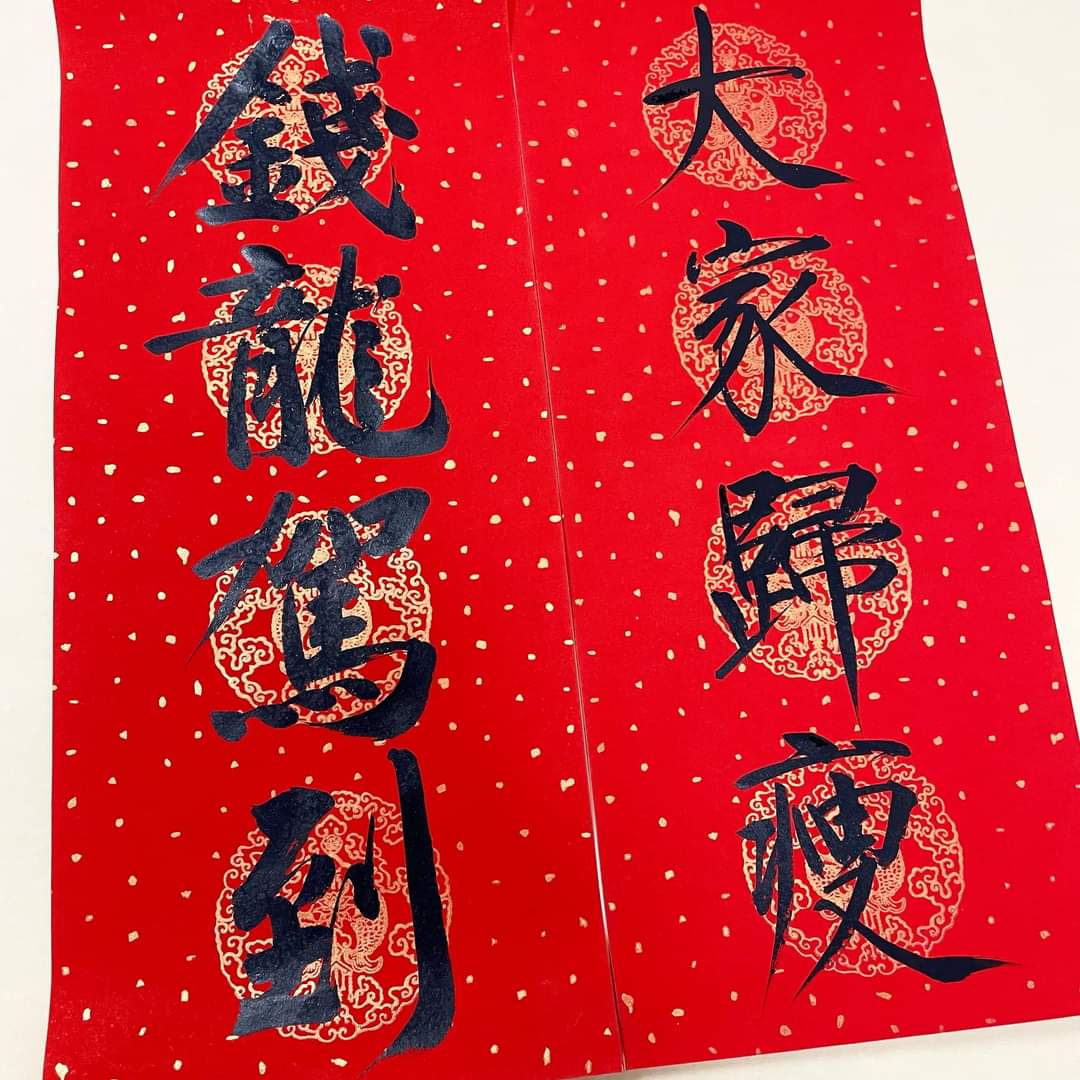 大家歸瘦
錢龍駕到